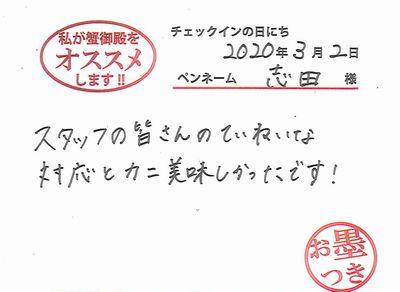 私が蟹御殿を
オススメ
します!!
チェックインの日にち
2020年3月2日
ペンネーム 志田 様
スタッフの皆さんのていねいな
対応とカニ美味しかったです!
お墨
つき